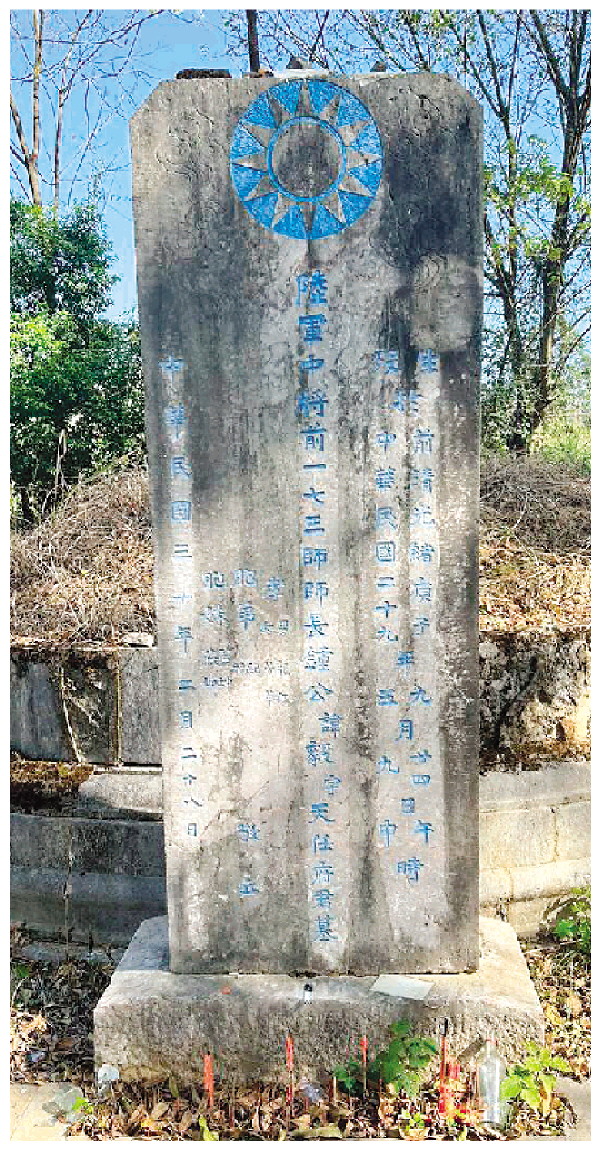 生於前清光緒庚子年九月廿四日午時
歿於中華民國二十九 五 九 申
陸軍中將前一七三師師長鍾公諱毅字天任府君墓
孝
胞弟
胞妹
敬立
中華民國三十年二月二十八日